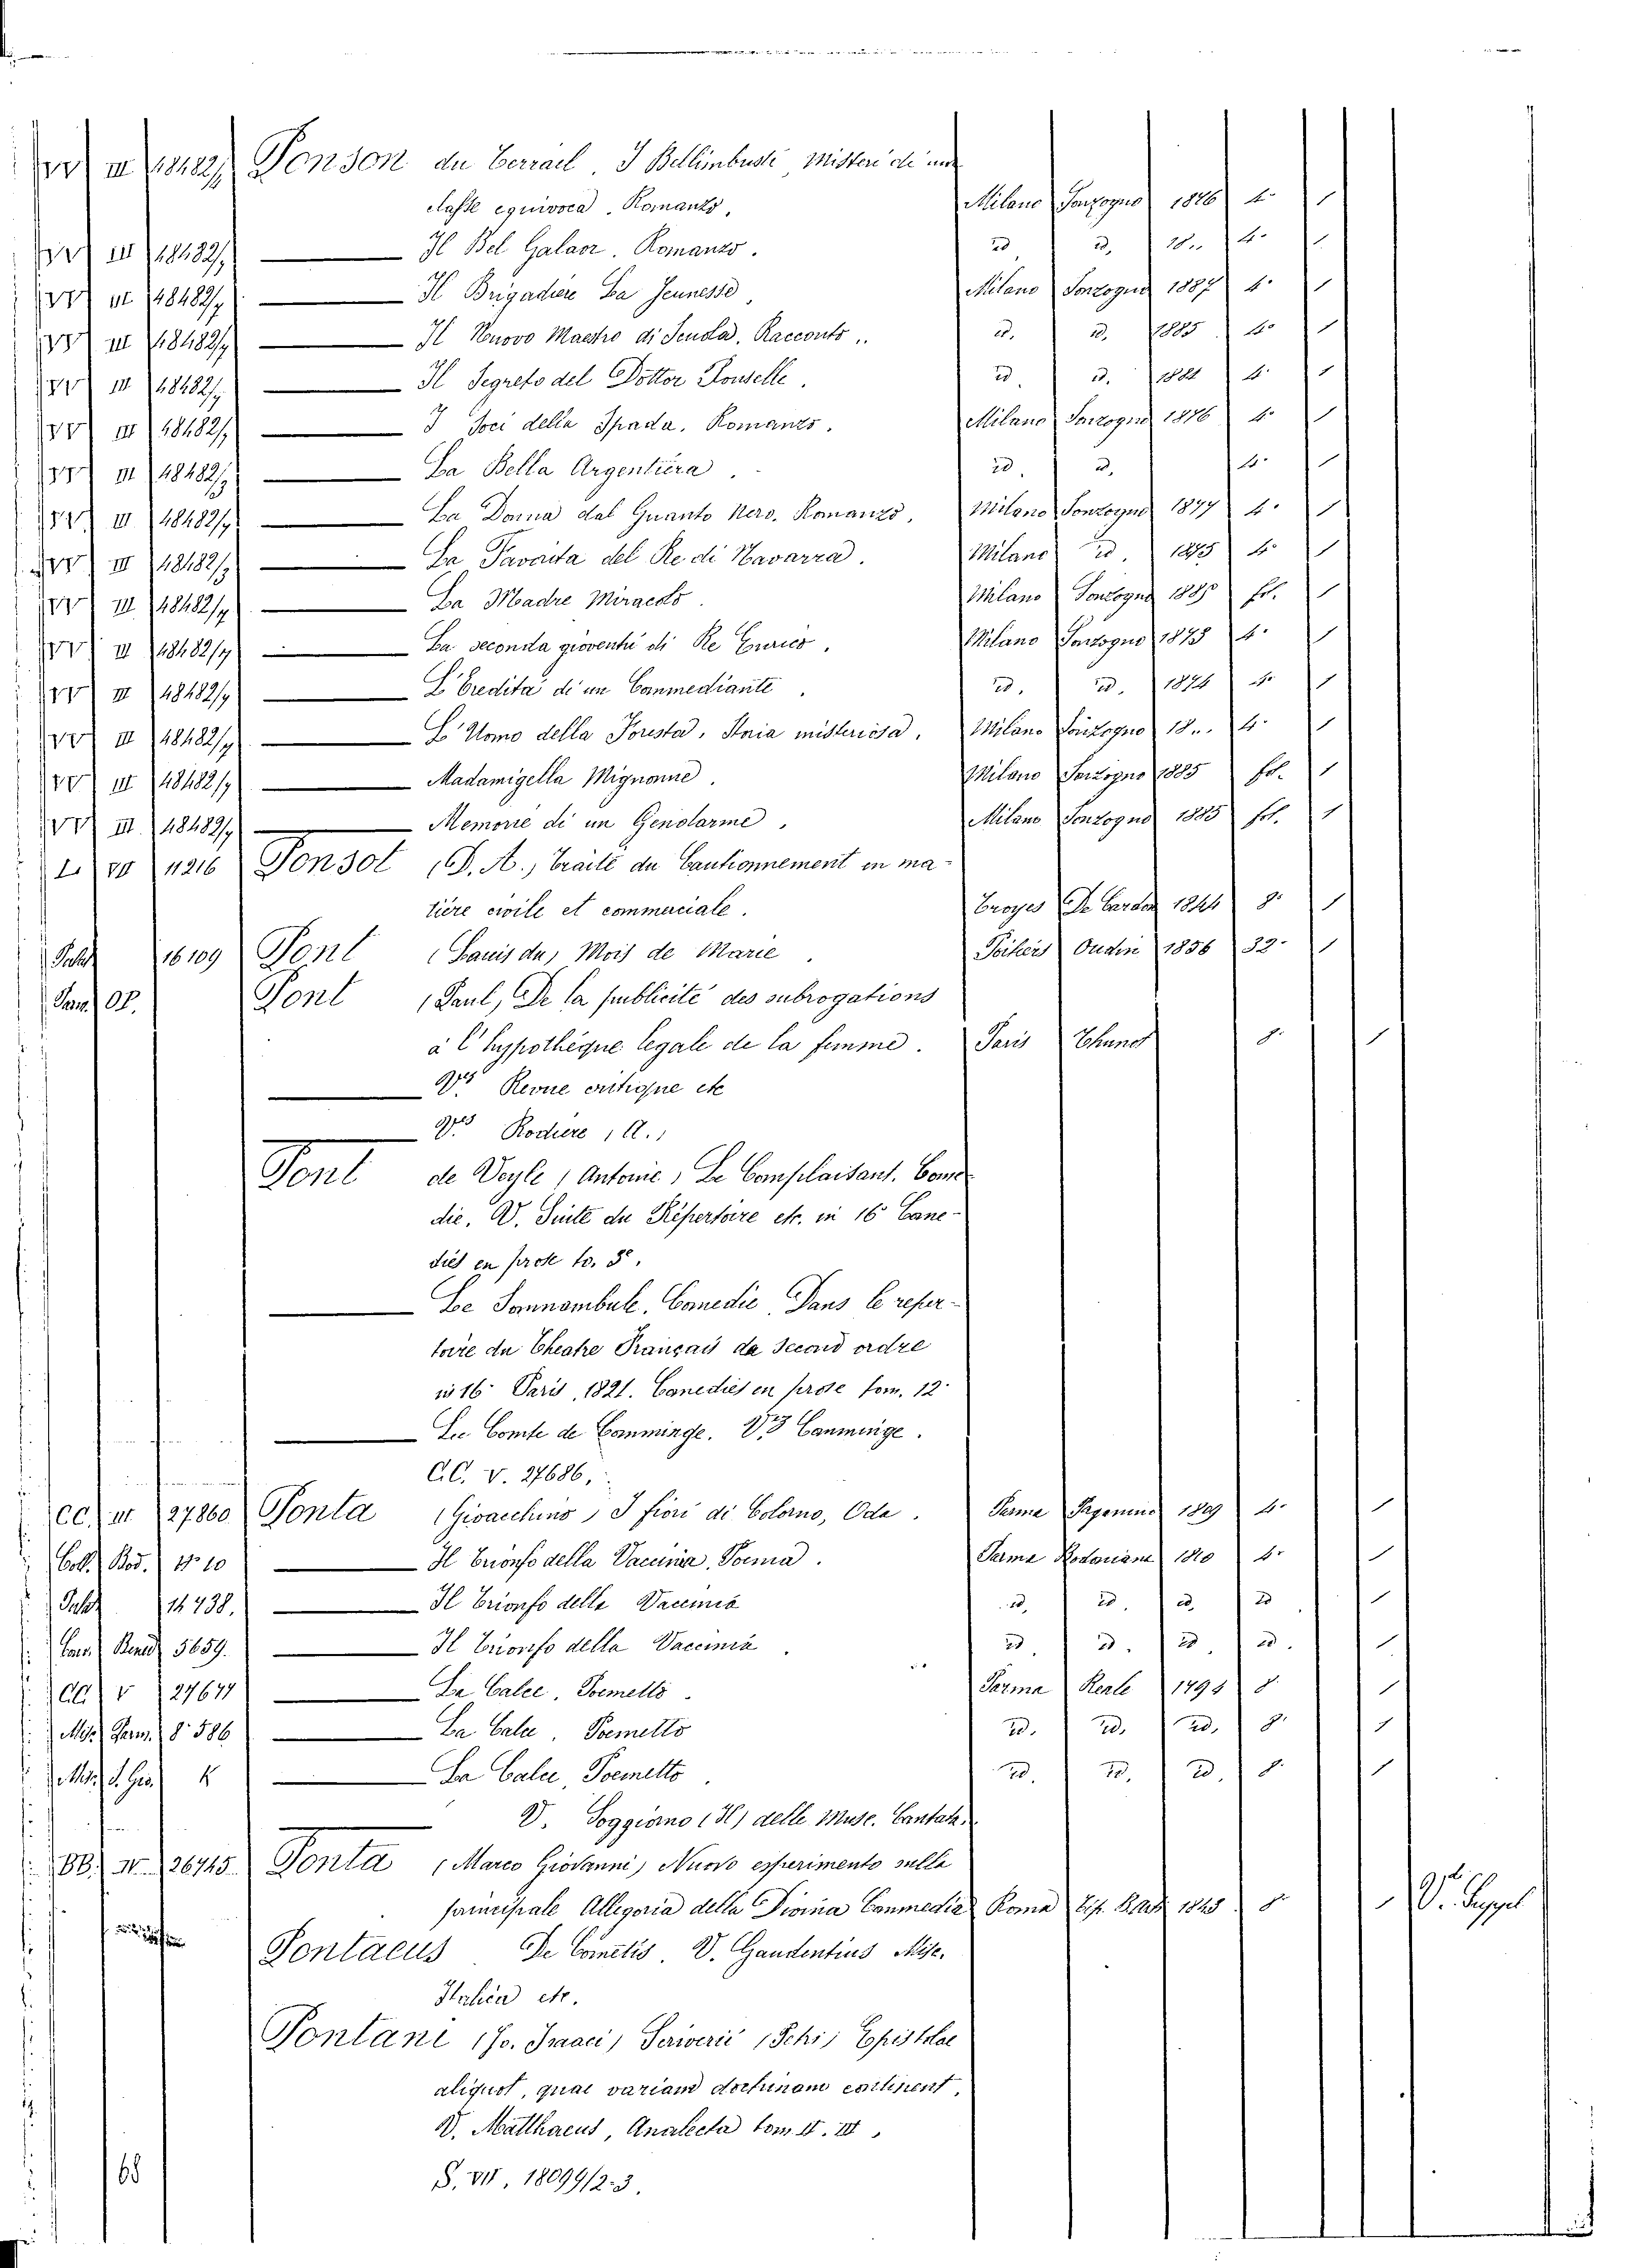 III 18482/7 Ponson du Terrail, I Bellimbusti, Misteri di una
classe equivoca. Romanzo. Milano Sonzogno 1876 4° 1
III 18482/7 Il Bel Galaor. Romanzo. id. id. 18.. 4° 1
III 18482/7 Il Brigadiere La Jeunesse. Milano Sonzogno 1887 4° 1
III 18482/7 Il Nuovo Maestro di Scuola. Racconto. id. id. 1885 4° 1
III 18482/7 Il Segreto del Dottor Rouselle. id. id. 1884 4° 1
III 18482/7 I Soci della Spada. Romanzo. Milano Sonzogno 1876 4° 1
III 18482/7 La Bella Argentiera. id. id. 4° 1
III 18482/7 La Donna dal Guanto Nero. Romanzo. Milano Sonzogno 1877 4° 1
III 18482/7 La Favorita del Re di Navarra. Milano id. 1875 4° 1
III 18482/7 La Madre Miracolo. Milano Sonzogno 1885 fol. 1
III 18482/7 La seconda gioventù di Re Enrico. Milano Sonzogno 1875 4° 1
III 18482/7 L'Eredità di un Commediante. id. id. 1874 4° 1
III 18482/7 L'Uomo della Foresta. Storia misteriosa. Milano Sonzogno 18.. 4° 1
III 18482/7 Madamigella Mignonne. Milano Sonzogno 1885 fol. 1
III 18482/7 Memorie di un Gendarme. Milano Sonzogno 1885 fol. 1
L VII 11216 Ponsot (D. A.) Traité du Cautionnement en ma-
tière civile et commerciale. Troyes De Cardon 1844 8° 1
Palat 16109 Pont (Louis du) Mois de Marie. Poitiers Oudin 1856 32° 1
Sanv. OP. Pont (Paul) De la publicité des subrogations
à l'hypothèque légale de la femme. Paris Thunot 8° 1
V. Revue critique etc
V. Rodiere (A.)
Pont de Veyle (Antoine) Le Complaisant. Comé-
die. V. Suite du Répertoire etc. in 16° Come-
dies en prose to. 5°.
Le Somnambule. Comedie. Dans le reper-
toire du Theatre Français du second ordre
in 16° Paris, 1821. Comedies en prose tom. 12°
Le Comte de Comminge. V. Comminge.
CC. V. 27686.
CC. III 27860 Ponta (Gioacchino) I fiori di Colorno, Oda. Parma Paganino 1809 4° 1
Coll. Bod. N° 10 Il Trionfo della Vaccinia. Poema. Parma Bodoniana 1810 4° 1
Palat 14738. Il Trionfo della Vaccinia id. id. id. id. 1
Bened. 5659. Il Trionfo della Vaccinia. id. id. id. id. 1
CC. V 27677 La Calce. Poemetto. Parma Reale 1795 8° 1
Misc. Parm. 8° 586 La Calce. Poemetto id. id. id. 8° 1
K La Calce, Poemetto. id. id. id. 8° 1
V. Soggiorno (Il) delle Muse. Cantata.
BB. IV. 26745 Ponta (Marco Giovanni) Nuovo esperimento sulla
principale Allegoria della Divina Commedia Roma Tip. 1843 8° 1 V. Suppl
Pontacus De Cometis. V. Gaudentius Misc.
Italica etc.
Pontani (Jo. Isaaci) Scriverii Epistolae
aliquot, quae variam doctrinam continent,
V. Matthaeus, Analecta tom. II. III,
S. VII. 18099/2-3.
68